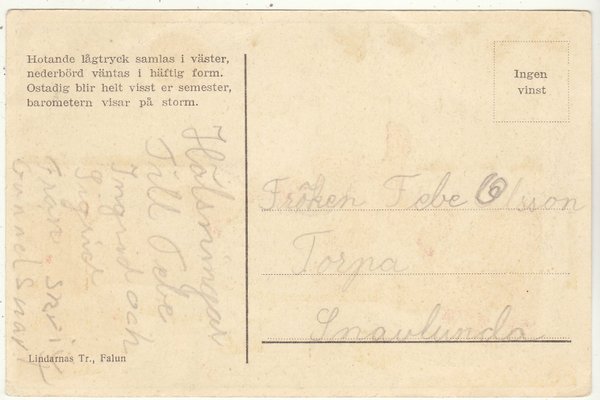 Hotande lågtryck samlas i väster,
nederbörd väntas i häftig form.
Ostadig blir helt visst er semester,
barometern visar på storm.
Ingen
vinst
Hälsningar
Till Febe
Ingrid och
Sigrid
Från
skriv
snart
Gunnel
Fröken Febe Olsson
Torpa
Snavlunda
Lindarnas Tr., Falun